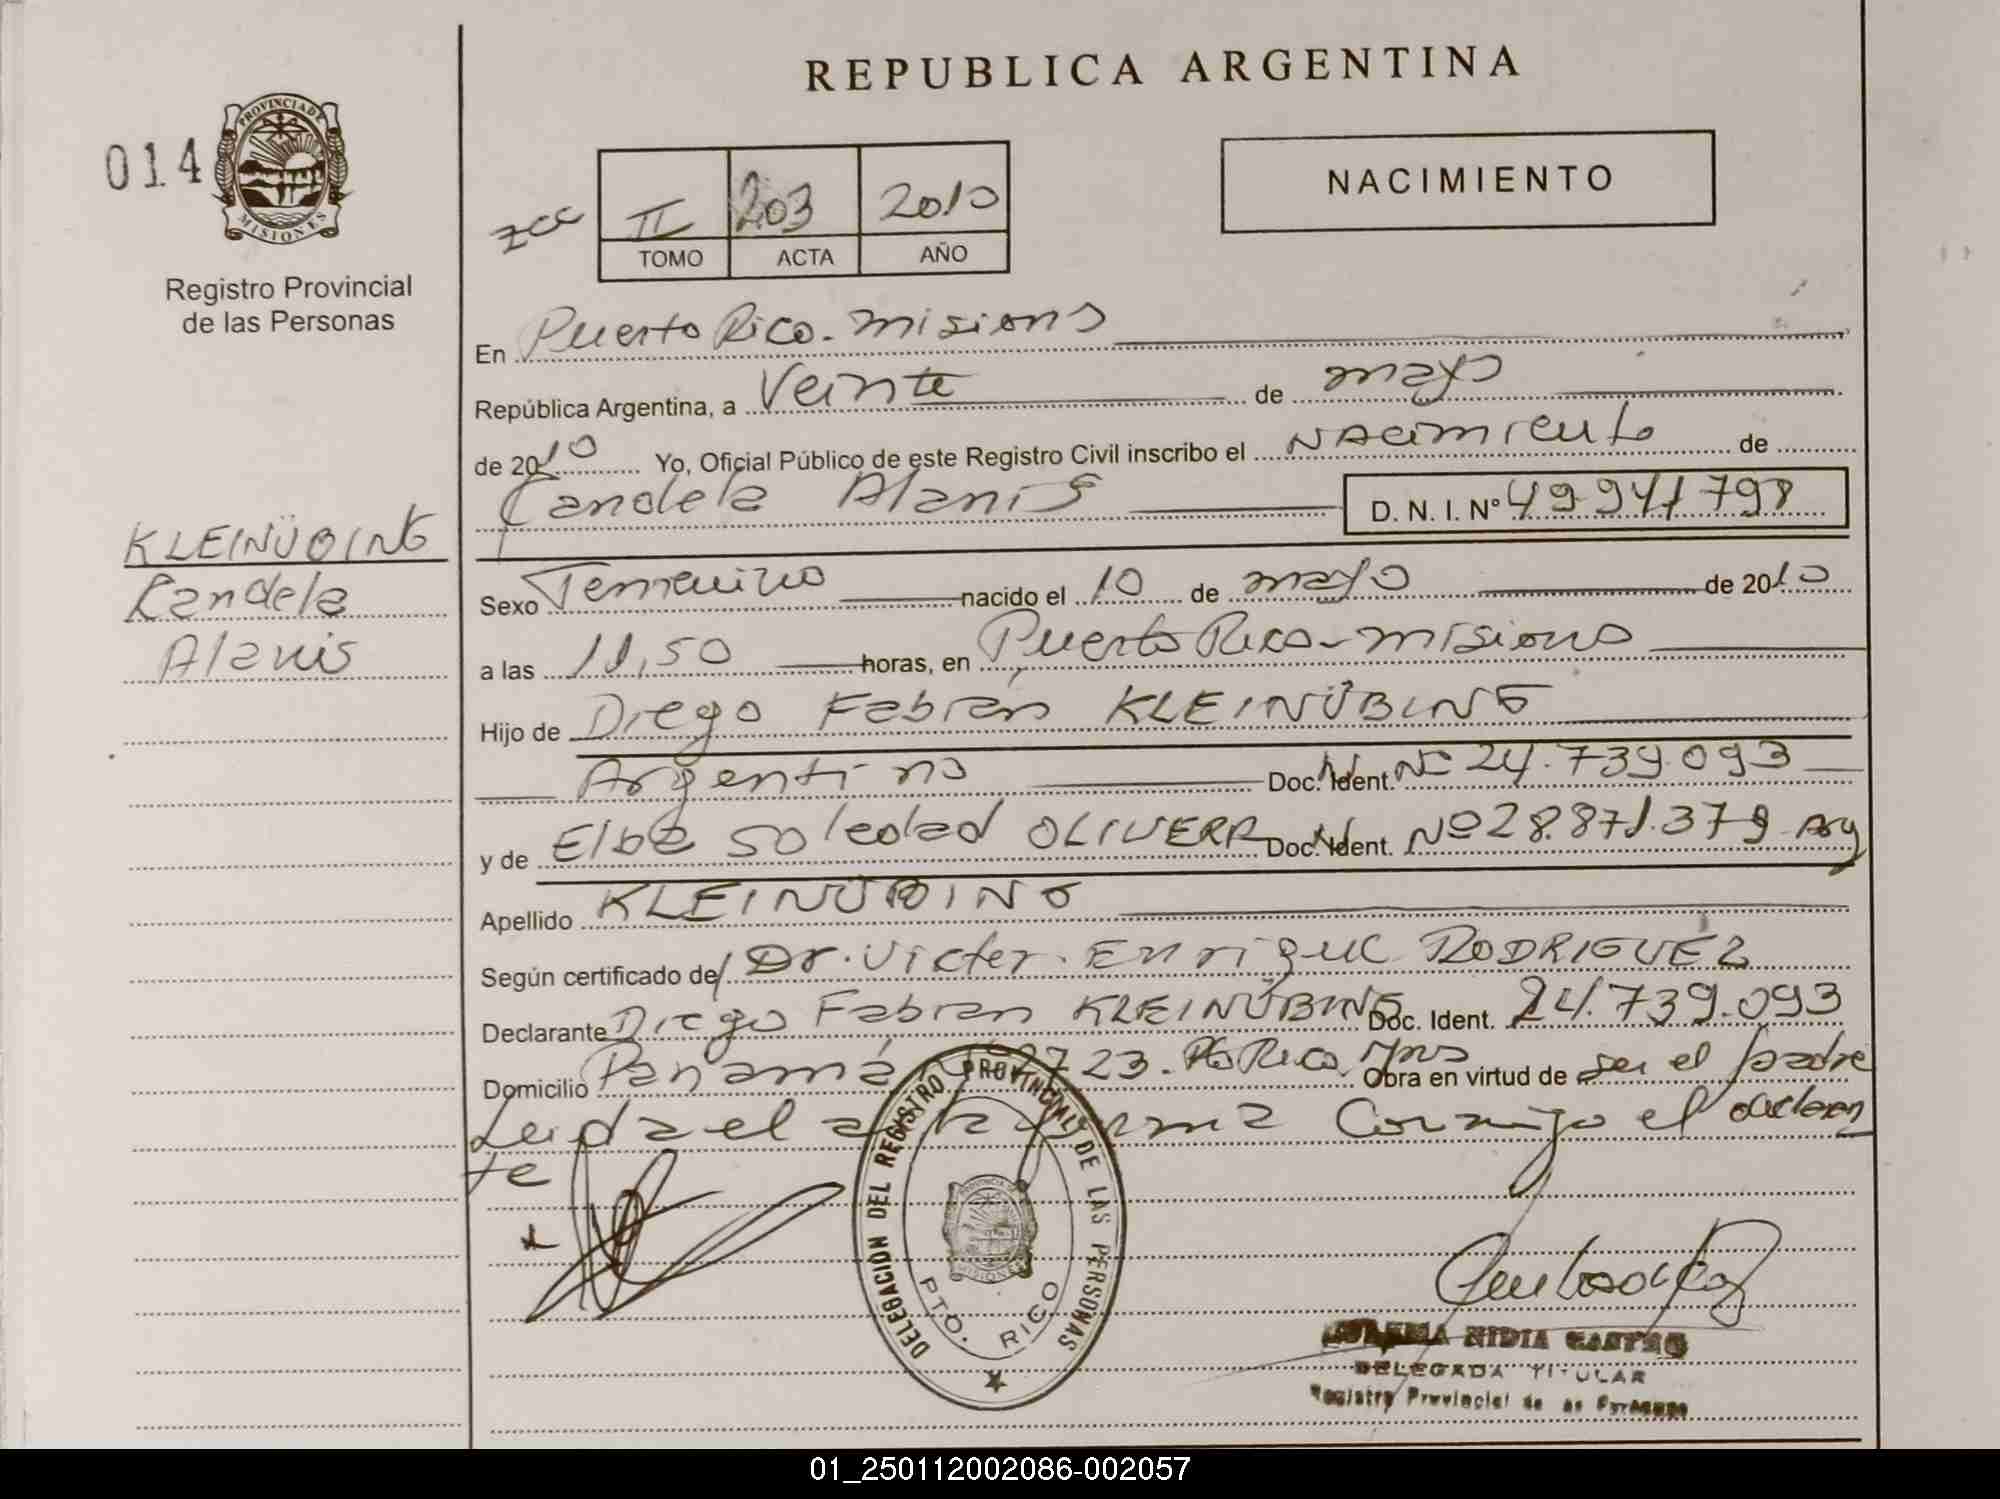 REPUBLICA ARGENTINA
014
PROVINCIA DE MISIONES
Registro Provincial
de las Personas
II 203 2010
TOMO ACTA AÑO
NACIMIENTO
En Puerto Rico - Misiones
República Argentina, a Veinte de mayo
de 2010 Yo, Oficial Público de este Registro Civil inscribo el Nacimiento de
Candela Alanis D. N. I. Nº 49.941.798
KLEINÜBING
Candela
Alanis
Sexo Femenino nacido el 10 de mayo de 2010
a las 11,50 horas, en Puerto Rico - Misiones
Hijo de Diego Fabián KLEINÜBING
Argentino Doc. Ident. Nº 24.739.093
y de Elba Soledad OLIVERA Doc. Ident. Nº 28.871.379 Arg
Apellido KLEINÜBING
Según certificado de/ Dr. Victor Enrique RODRIGUEZ
Declarante Diego Fabian KLEINÜBING Doc. Ident. 24.739.093
Domicilio Panamá 723. Pto Rico. Mns Obra en virtud de ser el padre
Leida el acta firma conmigo el declaran
te
DELEGACIÓN DEL REGISTRO PROVINCIAL DE LAS PERSONAS
PROVINCIA DE MISIONES
PTO. RICO
NIDIA CASTRO
DELEGADA TITULAR
Registro Provincial de las Personas
01_250112002086-002057